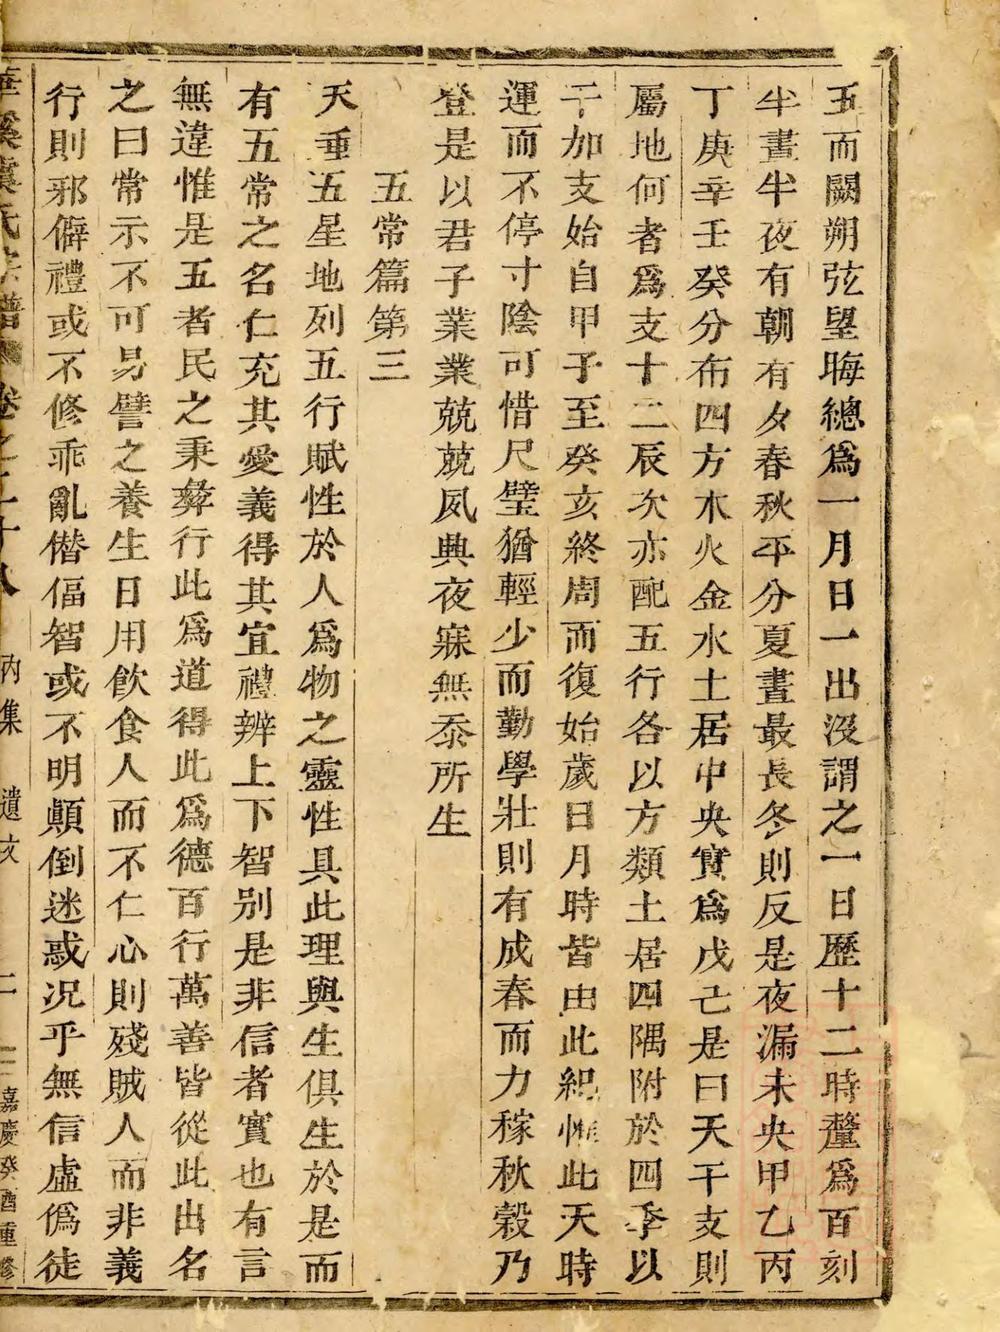 五而闕朔弦望晦總爲一月日一出沒謂之一日歷十二時釐爲百刻
半晝半夜有朝有夕春秋平分夏晝最長冬則反是夜漏未央甲乙丙
丁庚辛壬癸分布四方木火金水土居中央實爲戊己是曰天干支則
屬地何者爲支十二辰次亦配五行各以方類土居四隅附於四季以
干加支始自甲子至癸亥終周而復始歲日月時皆由此紀惟此天時
運而不停寸陰可惜尺璧猶輕少而勤學壯則有成春而力稼秋穀乃
登是以君子業業兢兢夙興夜寐無忝所生
五常篇第三
天垂五星地列五行賦性於人爲物之靈性具此理與生俱生於是而
有五常之名仁充其愛義得其宜禮辨上下智別是非信者實也有言
無違惟是五者民之秉彝行此爲道得此爲德百行萬善皆從此出名
之曰常示不可易譬之養生日用飲食人而不仁心則殘賊人而非義
行則邪僻禮或不修乖亂僭偪智或不明顛倒迷惑況乎無信虛僞徒
華溪虞氏宗譜 卷之二十八 內集 遺文 二 嘉慶癸酉重修